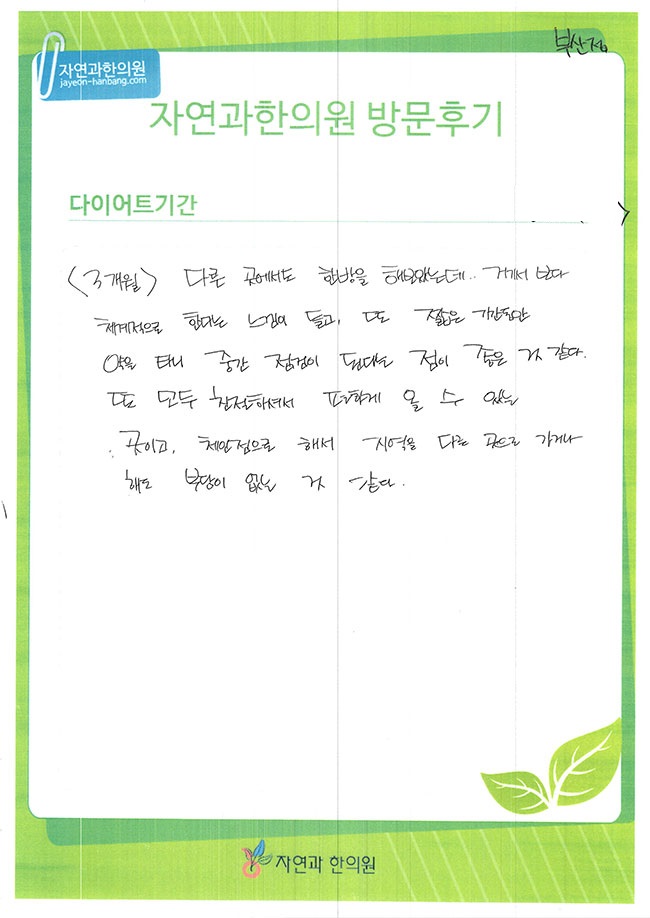 부산점
자연과한의원
jayeon-hanbang.com
자연과한의원 방문후기
다이어트기간
<3개월> 다른 곳에서도 한방을 해보았는데.. 거기서 보다
체계적으로 한다는 느낌이 들고, 또 짧은 기간동안
약을 타니 중간 점검이 된다는 점이 좋은 것 같다.
또 모두 친절하셔서 편하게 올 수 있는
곳이고, 체인점으로 해서 지역을 다른 곳으로 가거나
해도 부담이 없는 것 같다.
자연과 한의원